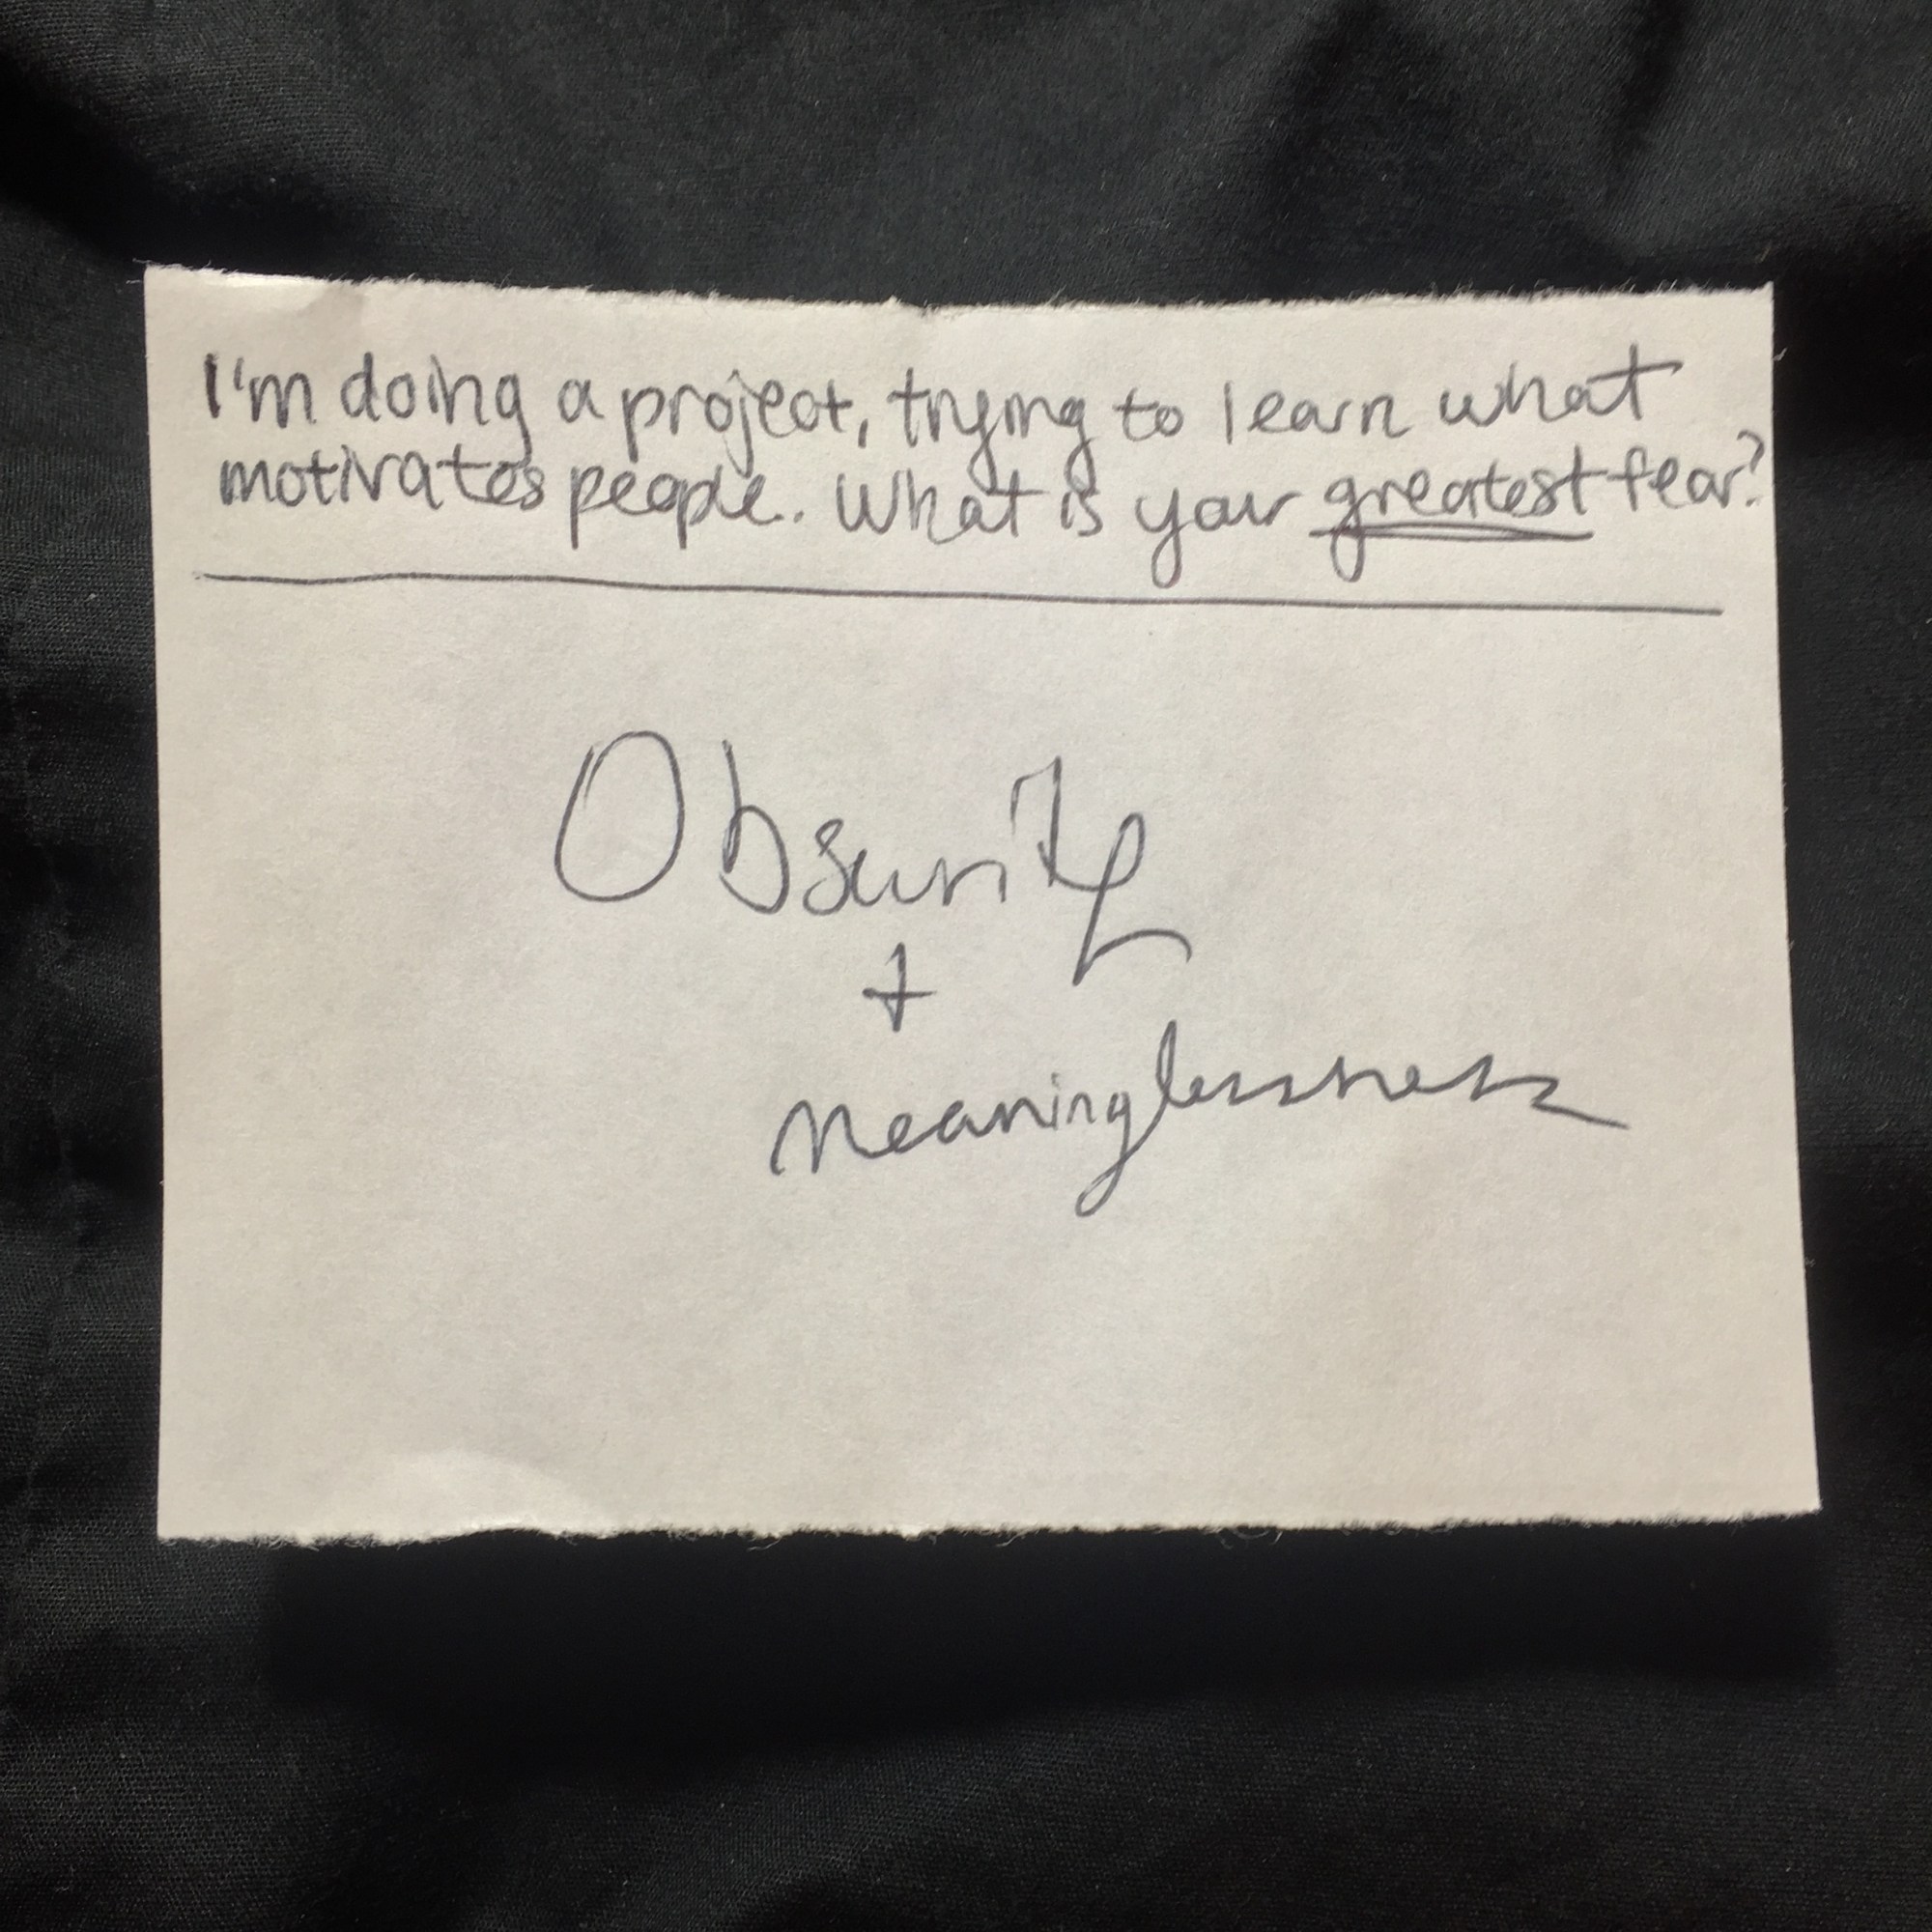 I'm doing a project, trying to learn what
motivates people. What is your greatest fear?
Obsurity
+
meaninglessness